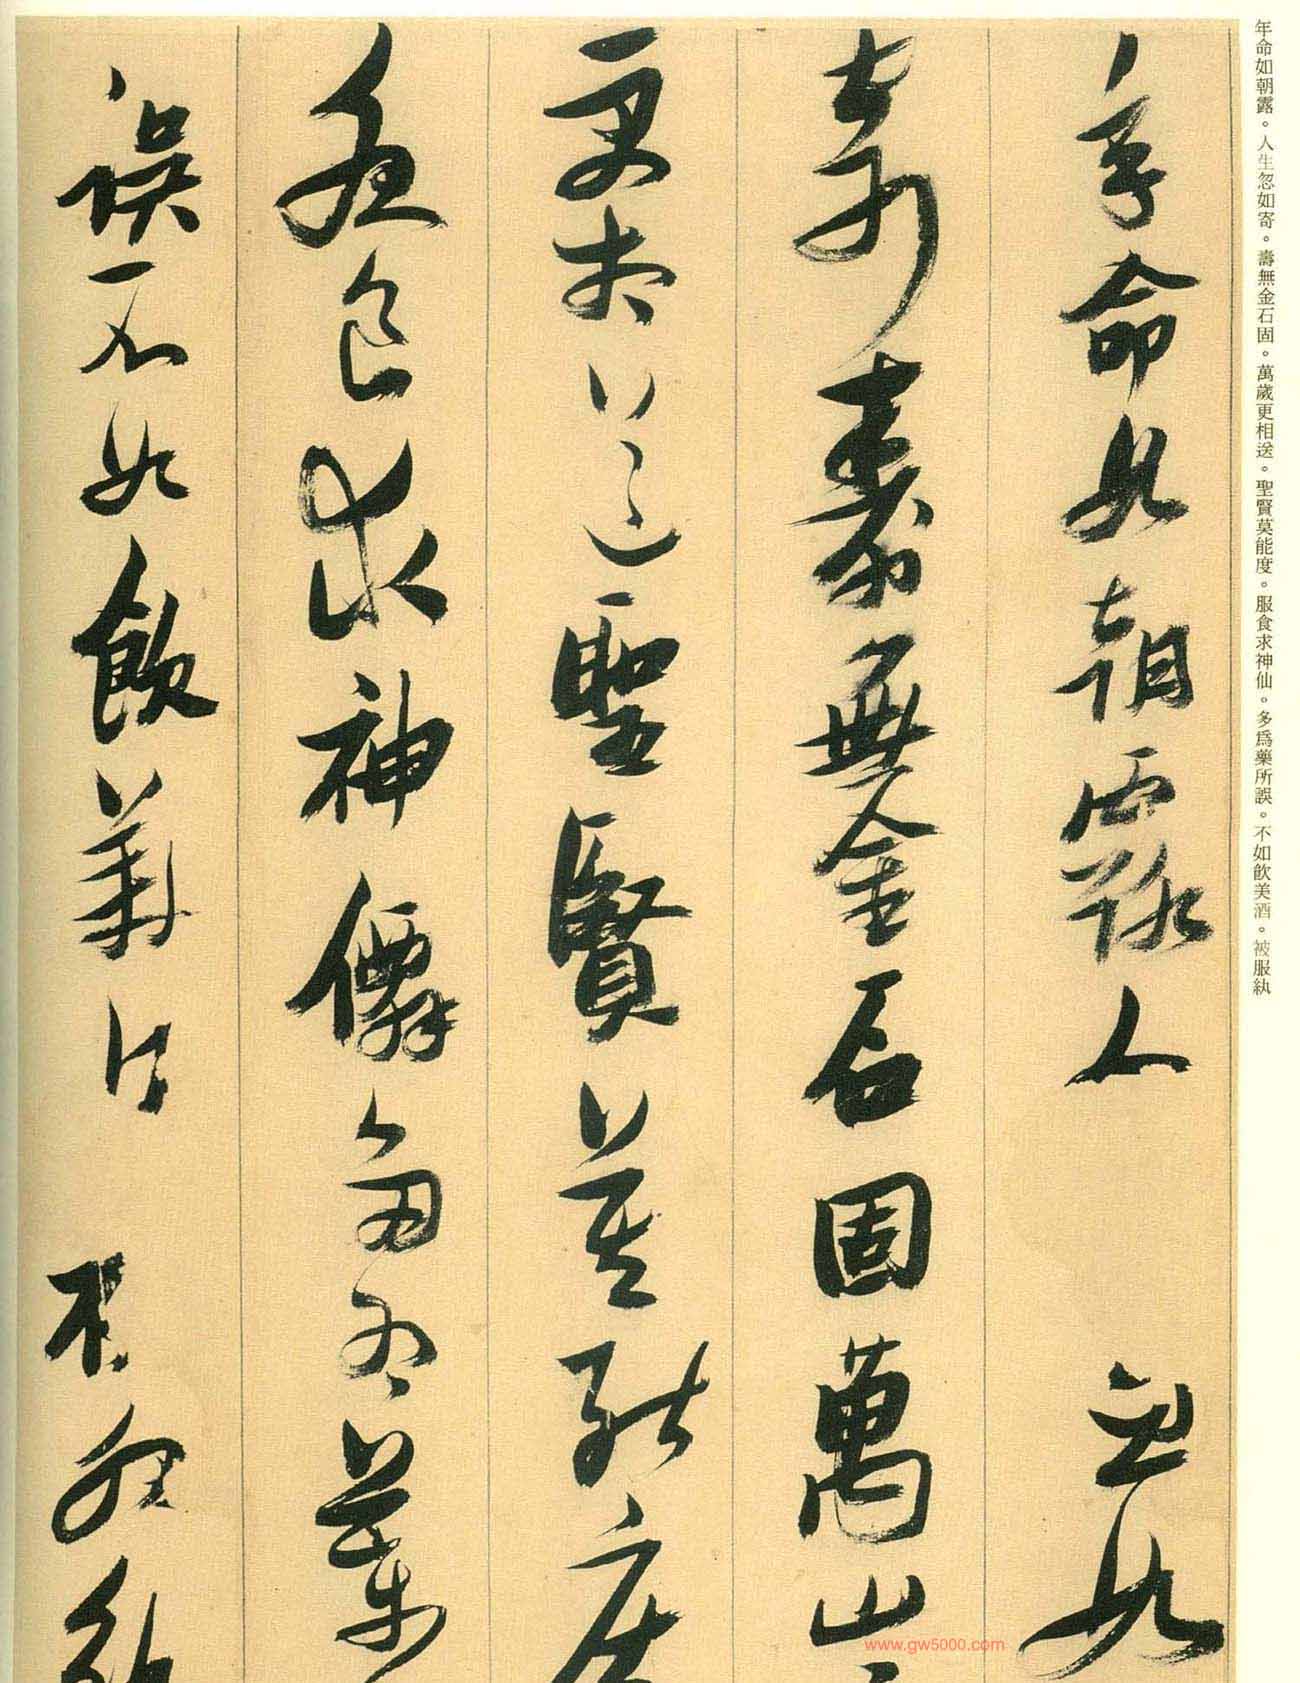 年命如朝露。人生忽如寄。壽無金石固。萬歲更相送。聖賢莫能度。服食求神仙。多爲藥所誤。不如飲美酒。被服紈
年命如朝露人忽如
寄壽無金石固萬歲
更相送聖賢莫能度
服食求神僊多為藥
誤不如飲美酒被服紈
www.gw5000.com